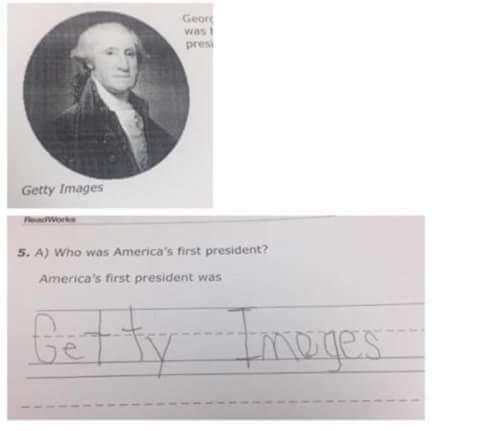 Georg
was t
presi
Getty Images
ReadWorks
5. A) Who was America's first president?
America's first president was
Getty Imeges